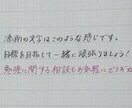 添削の文字はこのような感じです。
目標を目指して一緒に頑張りましょう!
勉強に関する相談もお気軽にどうぞ